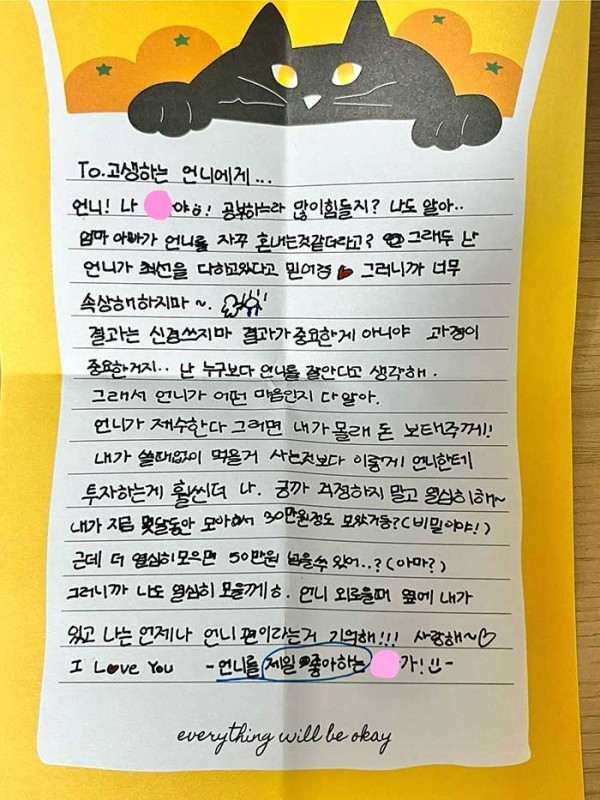 To. 고생하는 언니에게...
언니! 나 야ㅎ! 공부하느라 많이힘들지? 나도 알아..
엄마 아빠가 언니를 자꾸 혼내는것같더라고? 그래두 난
언니가 최선을 다하고있다고 믿어염 그러니까 너무
속상해하지마~.
결과는 신경쓰지마 결과가 중요한게 아니야 과정이
중요한거지.. 난 누구보다 언니를 잘안다고 생각해.
그래서 언니가 어떤 마음인지 다 알아.
언니가 재수한다 그러면 내가 몰래 돈 보태주께!
내가 쓸때없이 먹을거 사는것보다 이렇게 언니한테
투자하는게 훨씬더 나. 긍까 걱정하지 말고 열심히해~
내가 지금 몇달동안 모아서 30만원정도 모았거등?(비밀이야!)
근데 더 열심히모으면 50만원 넘을수 있어..?(아마?)
그러니까 나도 열심히 모을께ㅎ. 언니 외로울때 옆에 내가
있고 나는 언제나 언니 편이라는거 기억해!!! 사랑해~♡
I Love You -언니를 제일 좋아하는 가!!-
everything will be okay